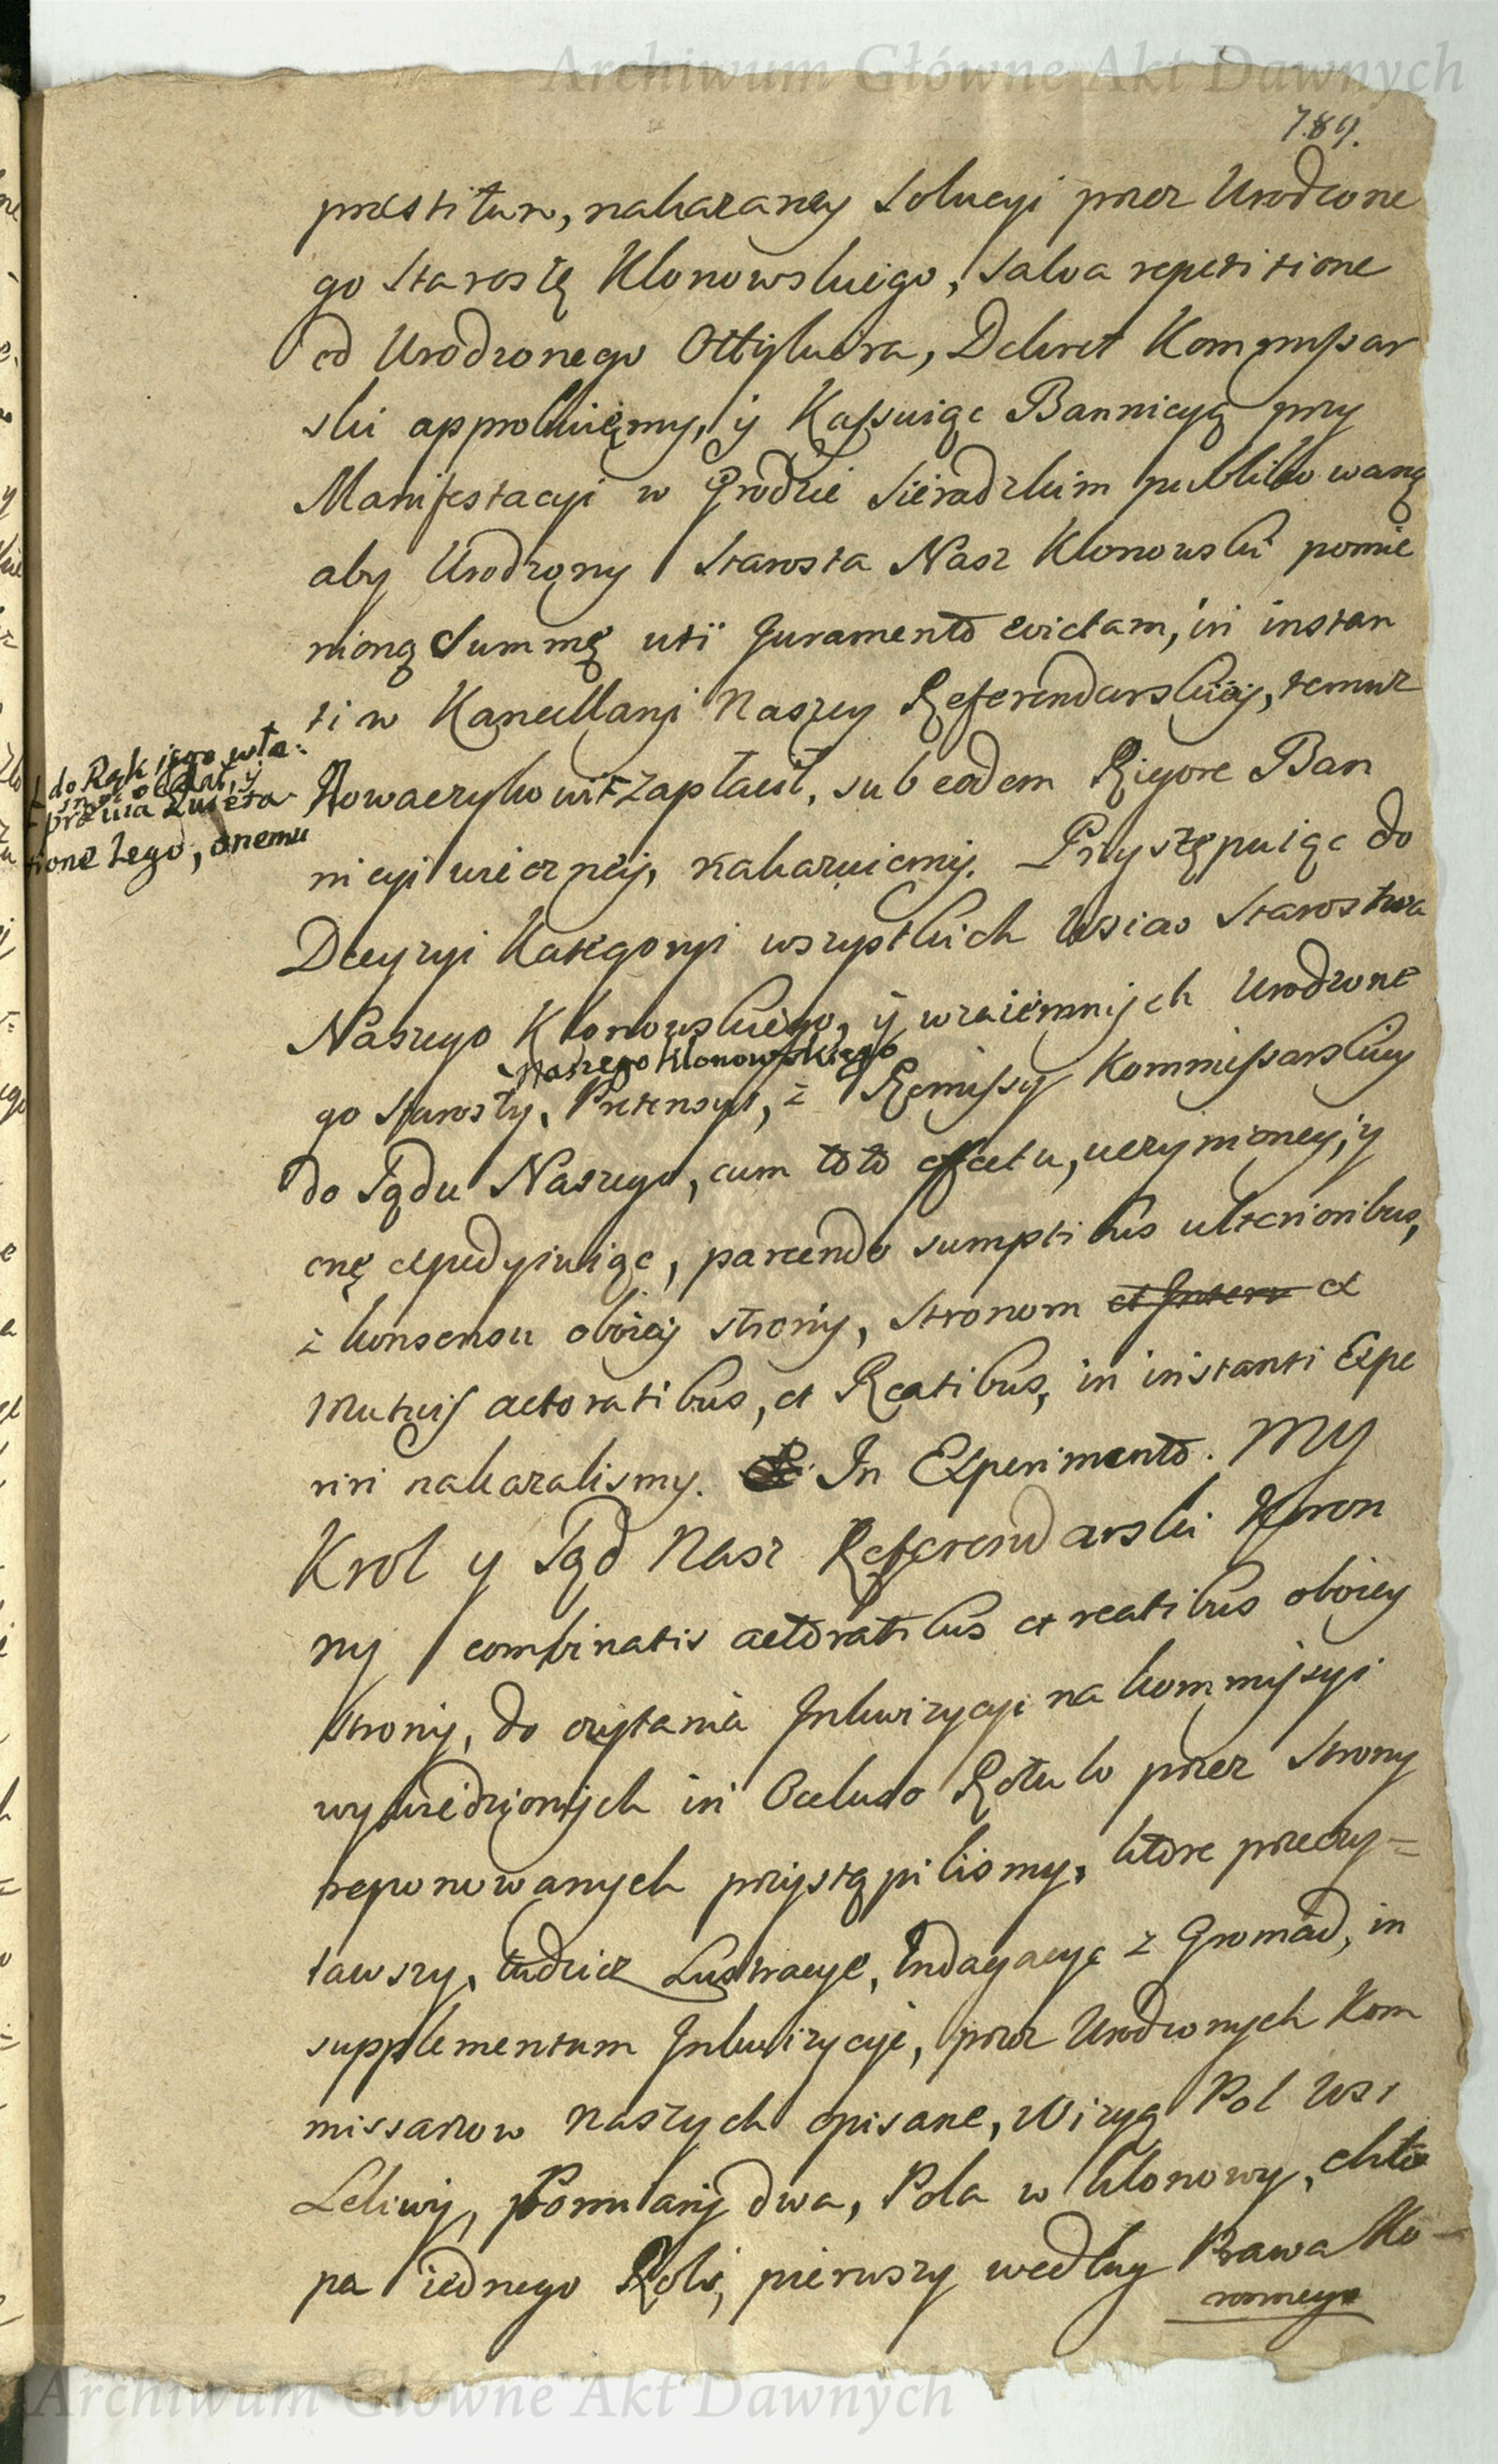 Archiwum Główne Akt Dawnych
789.
prestitum, nakazaney Solucyi przez Urodzone
go Starostę Klonowskiego, salva repetitione
od Urodzonego Dekret Kommissar
ski approbuięmy, y Kassuiąc Bannicyą przy
Manifestacyi w Grodzie Sieradzkim publikowaną
aby Urodzony Starosta Nasz Klonowski pomie
nioną Summę uti Juramento evictam, in instan
ti w Kancellaryi Naszey Referendarskiey, temuż
do Rąk iego wła:
tione tego, onemu
Nowaczykowi + zapłacił, sub eodem Rigore Ban
nicyi wieczney, nakazuiemy. Przystępuiąc do
Decyzyi Kategoryi wszystkich Wsiao Starostwa
Naszego Klonowskiego, y wzaiemnych Urodzone
Naszego Klonowskiego
go Starosty, Pretensyi, z Remissy Kommissarskiey
do Sądu Naszego, cum toto effectu, uczynioney, y
onę expedyiuiąc, parcendo sumptibus ulterioribus,
z konsensu oboiey strony, Stronom et Interu et
Mutuis actoratibus, et Reatibus, in instanti Expe
riri nakazalismy. In Experimento. My
Krol y Sąd Nasz Referendarski Koron
ny combinatis actoratibus et reatibus oboiey
Strony, do czytania Inkwizycyi na kommissyi
wywiedzionych in Ocluso Rotulo przez Strony
reponowanych przystąpilismy, ktore przeczy=
tawszy, tudzież Lustracye, Indagacye z Gromad, in
supplementum Inkwizycyi, przez Urodzonych Kom
missarzow Naszych opisane, Wizyą Pol Wsi
Leliwy, Pomiary dwa, Pola w Klonowy, chło
pa iednego Roli, pierwszy według Prawa No-
womiey
Archiwum Główne Akt Dawnych